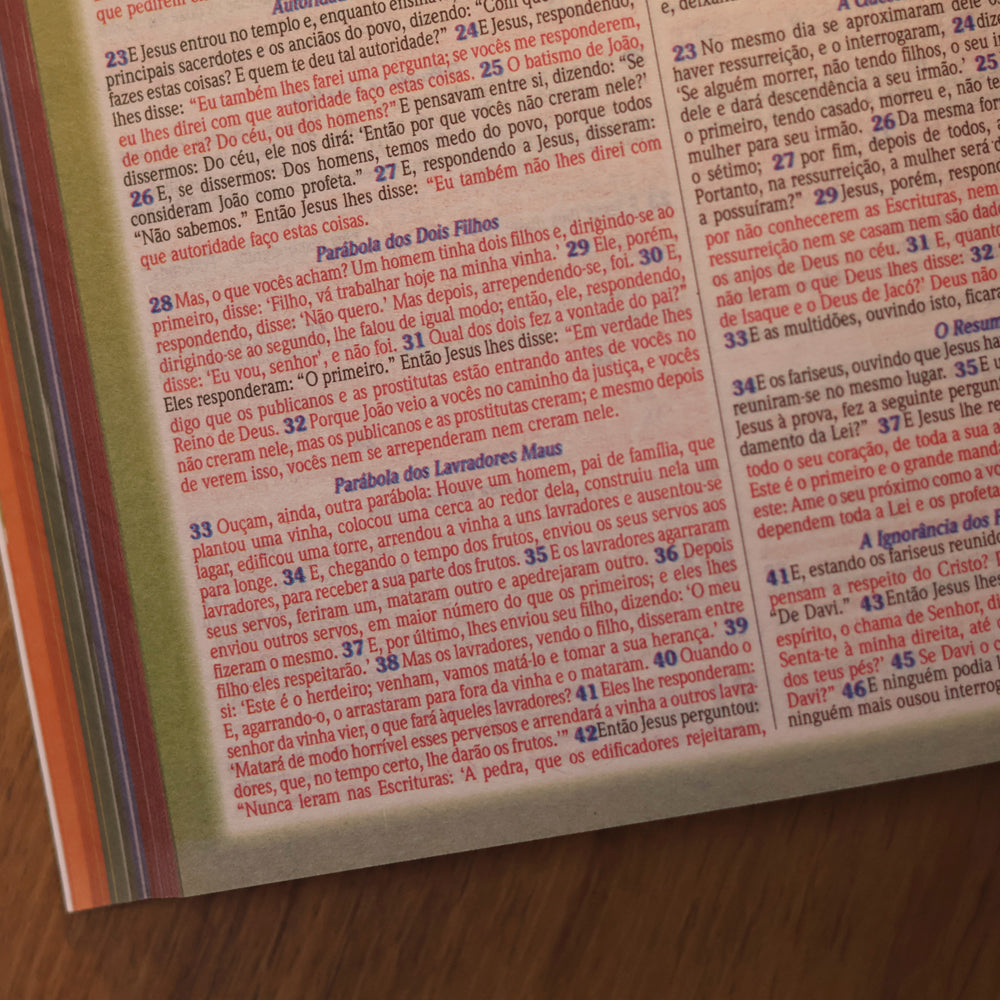 que pedirem
23 E Jesus entrou no templo e, enquanto
principais sacerdotes e os anciãos do povo, dizendo: “Com
fazes estas coisas? E quem te deu tal autoridade?” 24 E Jesus, respondendo,
lhes disse: “Eu também lhes farei uma pergunta; se vocês me responderem,
eu lhes direi com que autoridade faço estas coisas. 25 O batismo de João,
de onde era? Do céu, ou dos homens?” E pensavam entre si, dizendo: “Se
dissermos: Do céu, ele nos dirá: ‘Então por que vocês não creram nele?’
26 E, se dissermos: Dos homens, temos medo do povo, porque todos
consideram João como profeta.” 27 E, respondendo a Jesus, disseram:
“Não sabemos.” Então Jesus lhes disse: “Eu também não lhes direi com
que autoridade faço estas coisas.
Parábola dos Dois Filhos
28 Mas, o que vocês acham? Um homem tinha dois filhos e, dirigindo-se ao
primeiro, disse: ‘Filho, vá trabalhar hoje na minha vinha.’ 29 Ele, porém,
respondendo, disse: ‘Não quero.’ Mas depois, arrependendo-se, foi. 30 E,
dirigindo-se ao segundo, lhe falou de igual modo; então, ele, respondendo,
disse: ‘Eu vou, senhor’, e não foi. 31 Qual dos dois fez a vontade do pai?”
Eles responderam: “O primeiro.” Então Jesus lhes disse: “Em verdade lhes
digo que os publicanos e as prostitutas estão entrando antes de vocês no
Reino de Deus. 32 Porque João veio a vocês no caminho da justiça, e vocês
não creram nele, mas os publicanos e as prostitutas creram; e mesmo depois
de verem isso, vocês nem se arrependeram nem creram nele.
Parábola dos Lavradores Maus
33 Ouçam, ainda, outra parábola: Houve um homem, pai de família, que
plantou uma vinha, colocou uma cerca ao redor dela, construiu nela um
lagar, edificou uma torre, arrendou a vinha a uns lavradores e ausentou-se
para longe. 34 E, chegando o tempo dos frutos, enviou os seus servos aos
lavradores, para receber a sua parte dos frutos. 35 E os lavradores agarraram
seus servos, feriram um, mataram outro e apedrejaram outro. 36 Depois
enviou outros servos, em maior número do que os primeiros; e eles lhes
fizeram o mesmo. 37 E, por último, lhes enviou seu filho, dizendo: ‘O meu
filho eles respeitarão.’ 38 Mas os lavradores, vendo o filho, disseram entre
si: ‘Este é o herdeiro; venham, vamos matá-lo e tomar a sua herança.’ 39
E, agarrando-o, o arrastaram para fora da vinha e o mataram. 40 Quando o
senhor da vinha vier, o que fará àqueles lavradores? 41 Eles lhe responderam:
‘Matará de modo horrível esses perversos e arrendará a vinha a outros lavra-
dores, que, no tempo certo, lhe darão os frutos.’” 42 Então Jesus perguntou:
“Nunca leram nas Escrituras: ‘A pedra, que os edificadores rejeitaram,
23 No mesmo dia se aproximaram dele
haver ressurreição, e o interrogaram, 24
‘Se alguém morrer, não tendo filhos, o seu
dele e dará descendência a seu irmão.’ 25
o primeiro, tendo casado, morreu e, não
mulher para seu irmão. 26 Da mesma
o sétimo; 27 por fim, depois de todos,
Portanto, na ressurreição, a mulher será
a possuíram?” 29 Jesus, porém,
por não conhecerem as Escrituras, nem
ressurreição nem se casam nem são
os anjos de Deus no céu. 31 E,
não leram o que Deus lhes disse: 32
de Isaque e o Deus de Jacó?’ Deus não
33 E as multidões, ouvindo isto,
O
34 E os fariseus, ouvindo que Jesus
reuniram-se no mesmo lugar. 35 E
Jesus à prova, fez a seguinte
damento da Lei?” 37 E Jesus lhe
todo o seu coração, de toda a sua
Este é o primeiro e o grande
este: Ame o seu próximo como a
dependem toda a Lei e os
A Ignorância dos
41 E, estando os fariseus
pensam a respeito do Cristo?
“De Davi.” 43 Então Jesus
espírito, o chama de Senhor,
Senta-te à minha direita, até
dos teus pés?’ 45 Se Davi o
Davi?” 46 E ninguém podia
ninguém mais ousou